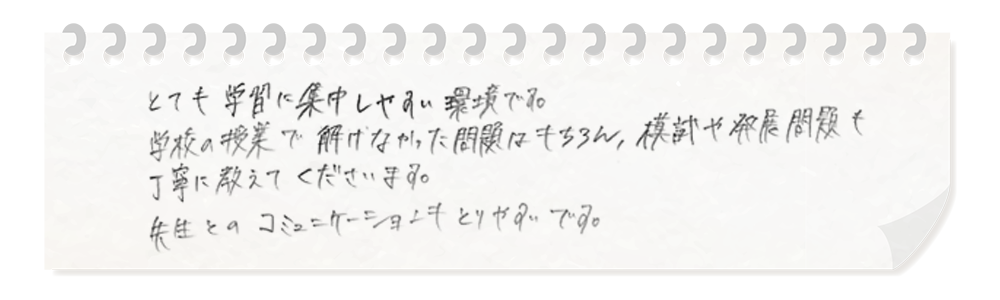 とても学習に集中しやすい環境です。
学校の授業で解けなかった問題はもちろん、模試や発展問題も
丁寧に教えてくださいます。
先生とのコミュニケーションもとりやすいです。